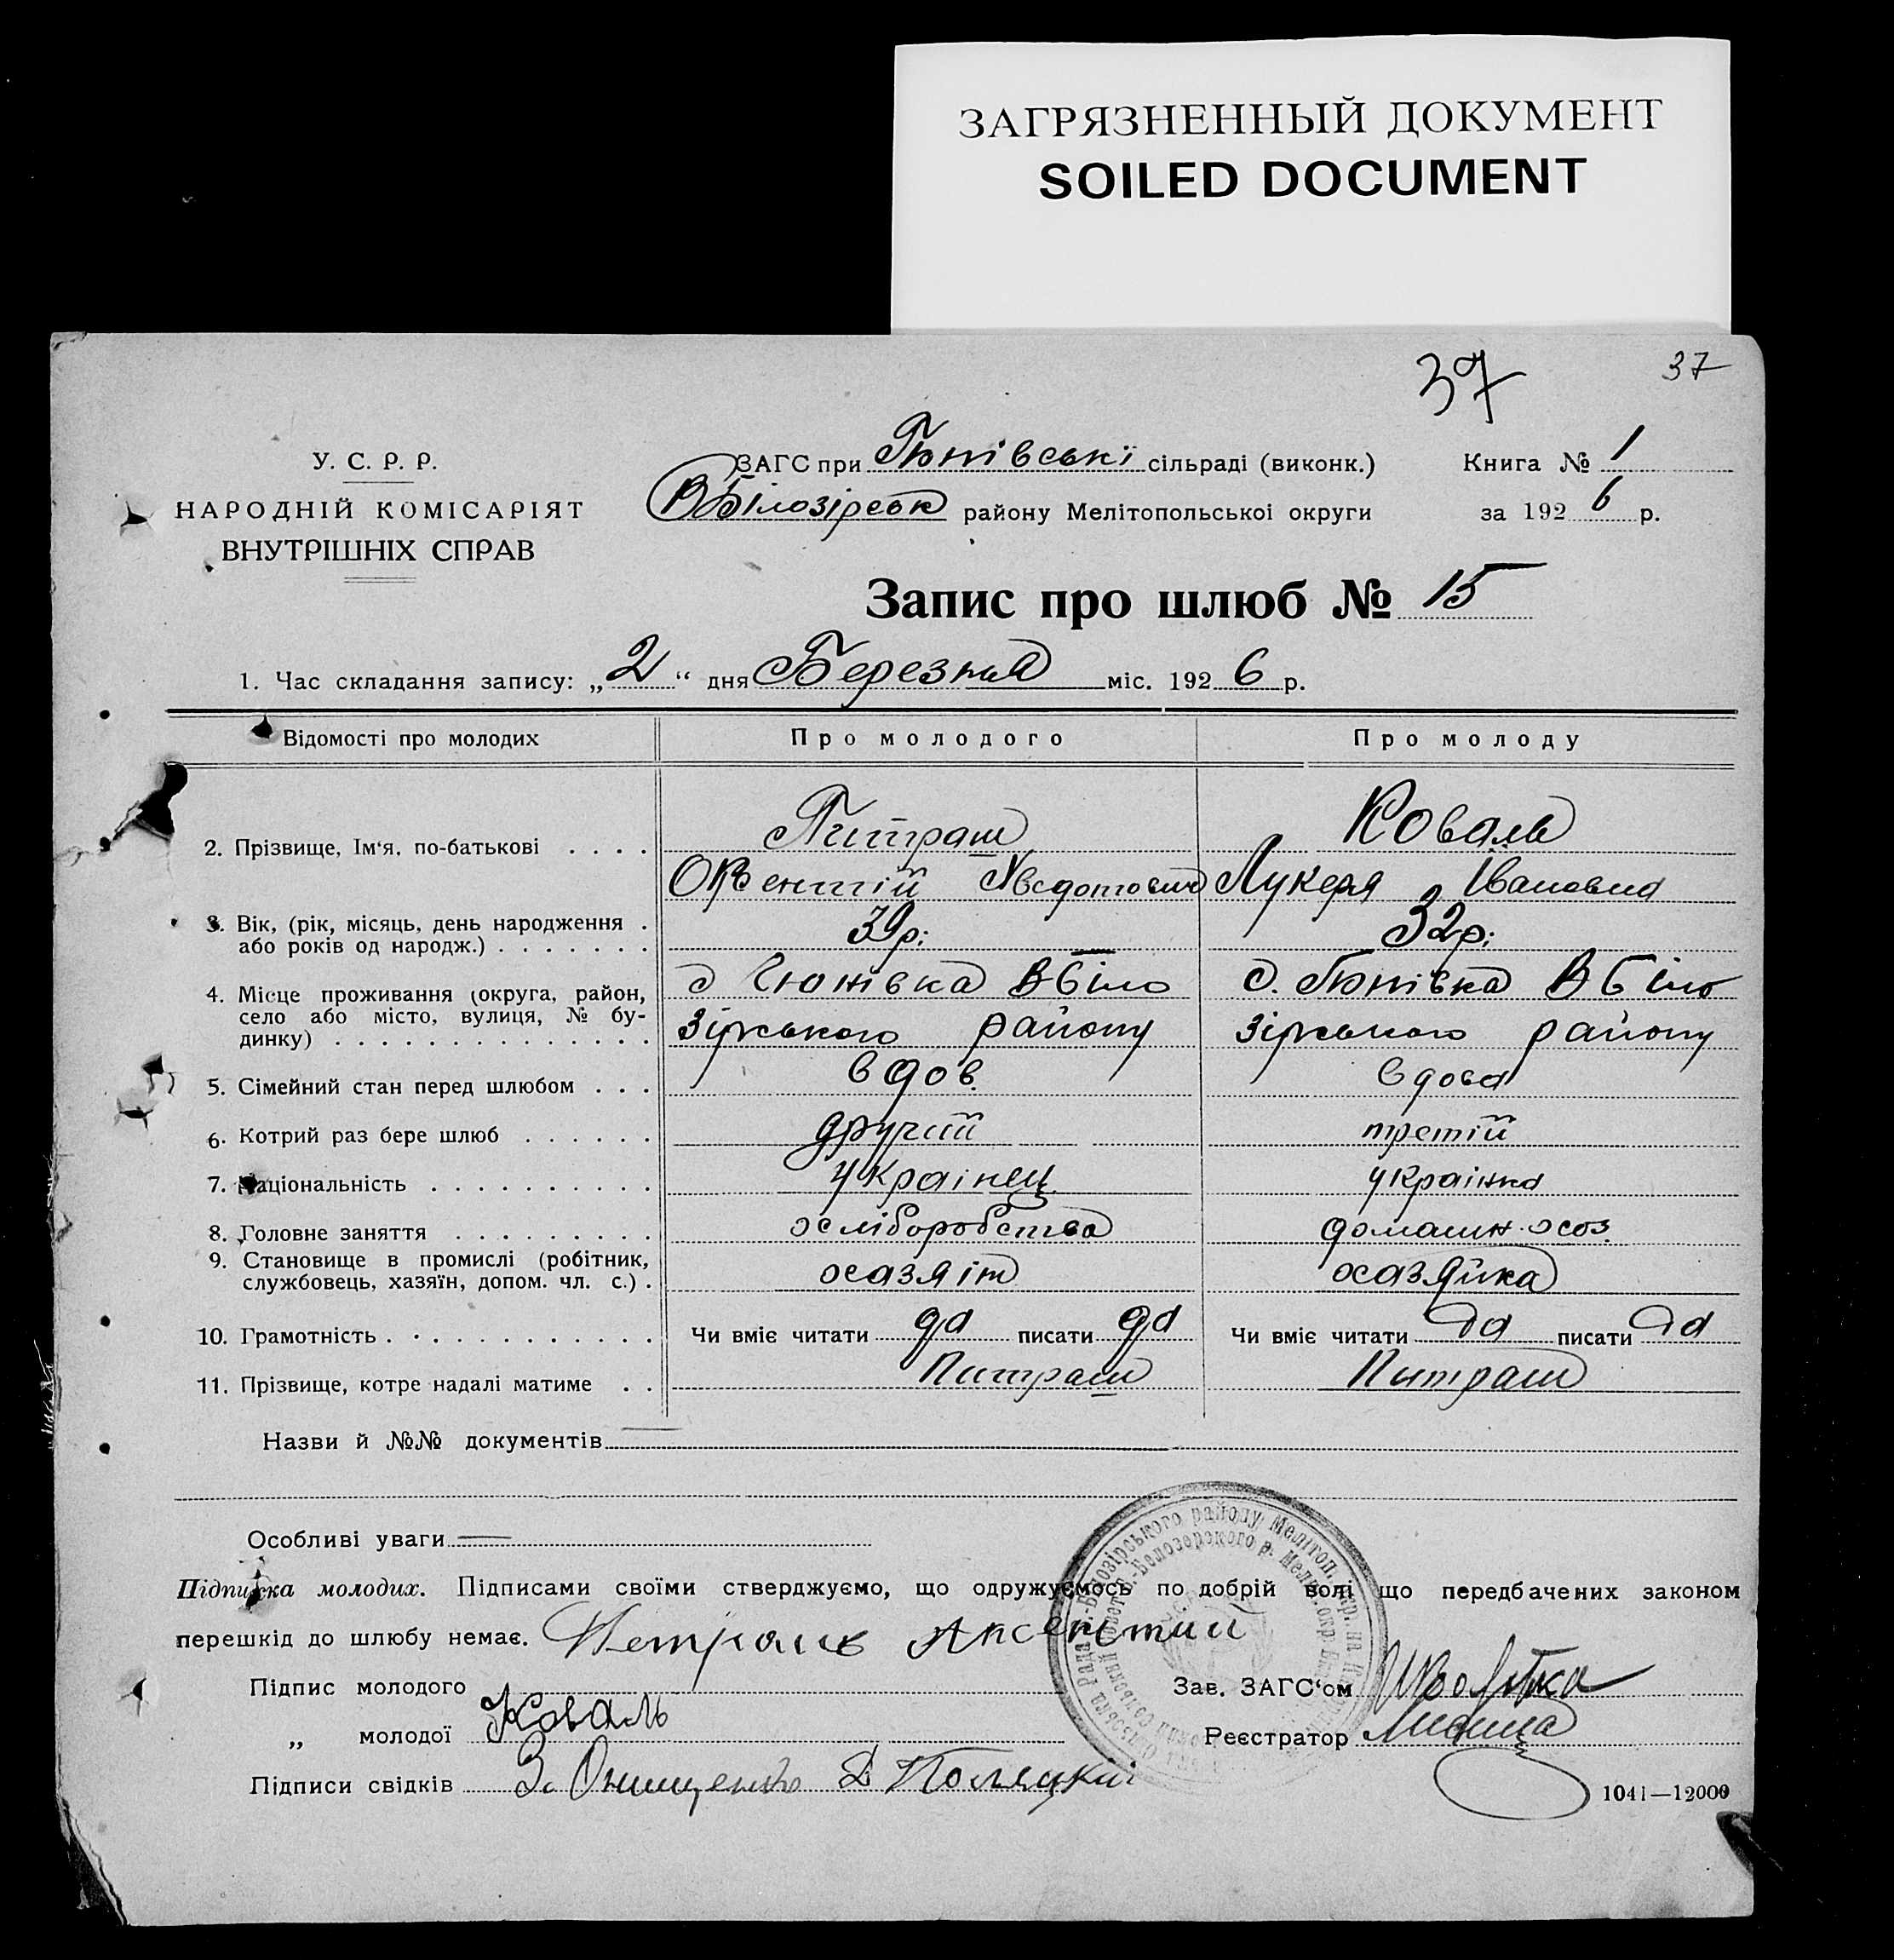 ЗАГРЯЗНЕННЫЙ ДОКУМЕНТ
SOILED DOCUMENT
37 37
У. С. Р. Р.
НАРОДНІЙ КОМІСАРІЯТ
ВНУТРІШНІХ СПРАВ
ЗАГС при Гюнівські сільраді (виконк.) Книга № 1
В Білозірськ району Мелітопольської округи за 1926 р.
Запис про шлюб № 15
1. Час складання запису: „2“ дня Березня міс. 1926 р.
Відомості про молодих Про молодого Про молоду
Питраш Коваль
2. Прізвище, Ім‘я, по-батькові . . . .
Овсдотович Лукеря Івановна
3. Вік, (рік, місяць, день народження . 39 р. 32 р.
або років од народж.) . . . . . . .
4. Місце проживання (округа, район, с Гюнівка В Біло с. Гюнівка В Біло
село або місто, вулиця, № бу- зірського району зірського району
динку) . . . . . . . . . . . . . .
5. Сімейний стан перед шлюбом . . . вдов. вдова
6. Котрий раз бере шлюб . . . . . . другий третій
7. Національність . . . . . . . . . . українец українка
8. Головне заняття . . . . . . . . . хліборобства домашн. хоз.
9. Становище в промислі (робітник,
службовець, хазяїн, допом. чл. с.) . хазяін хазяйка
10. Грамотність . . . . . . . . . . . . Чи вміє читати да писати да Чи вміє читати да писати да
11. Прізвище, котре надалі матиме . . Питраш Питраш
Назви й №№ документів —
Особливі уваги —
Підписка молодих. Підписами своїми стверджуємо, що одружуємось по добрій волі що передбачених законом
перешкід до шлюбу немає. Петраш Аксентий
Підпис молодого Зав. ЗАГС‘ом
„ молодої Коваль Реєстратор
Підписи свідків З. Онищенко Д Поляцкий 1041—12000